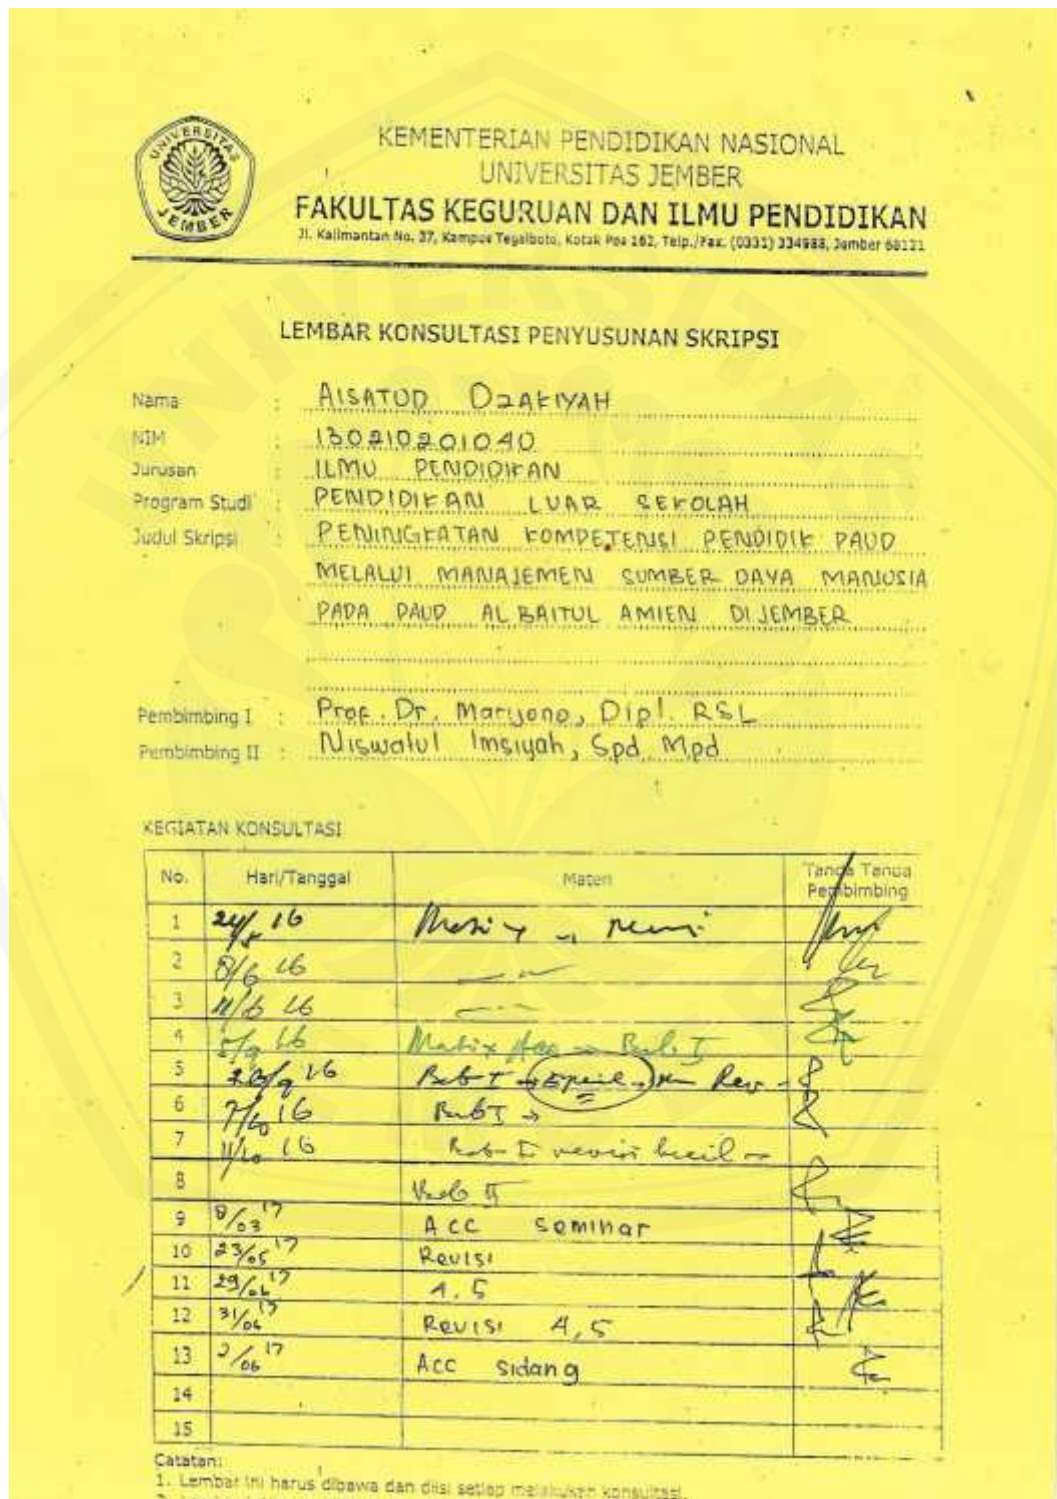 UNIVERSITAS JEMBER
KEMENTERIAN PENDIDIKAN NASIONAL
UNIVERSITAS JEMBER
FAKULTAS KEGURUAN DAN ILMU PENDIDIKAN
Jl. Kalimantan No. 37, Kampus Tegalboto, Kotak Pos 162, Telp./Fax. (0331) 334988, Jember 68121
LEMBAR KONSULTASI PENYUSUNAN SKRIPSI
Nama : AISATUD DZAKIYAH
NIM : 130210201040
Jurusan : ILMU PENDIDIKAN
Program Studi : PENDIDIKAN LUAR SEKOLAH
Judul Skripsi : PENINGKATAN KOMPETENSI PENDIDIK PAUD
MELALUI MANAJEMEN SUMBER DAYA MANUSIA
PADA PAUD AL BAITUL AMIEN DI JEMBER
Pembimbing I : Prof. Dr. Marijono, Dipl. RSL
Pembimbing II : Niswatul Imsiyah, Spd, Mpd
KEGIATAN KONSULTASI
No. Hari/Tanggal Materi Tanda Tanda Pembimbing
1 16 Matrix
2 8/6 16
3 16
4 5/9 16 Matrix Acc Bab I
5 16 Bab I Rev
6 7/10 16 Bab I
7 11/10 16 Bab I revisi kecil
8 Bab II
9 8/03 17 ACC seminar
10 23/05 17 Revisi
11 17 4.5
12 17 Revisi 4,5
13 2/06 17 Acc sidang
14
15
Catatan:
1. Lembar ini harus dibawa dan diisi setiap melakukan konsultasi.